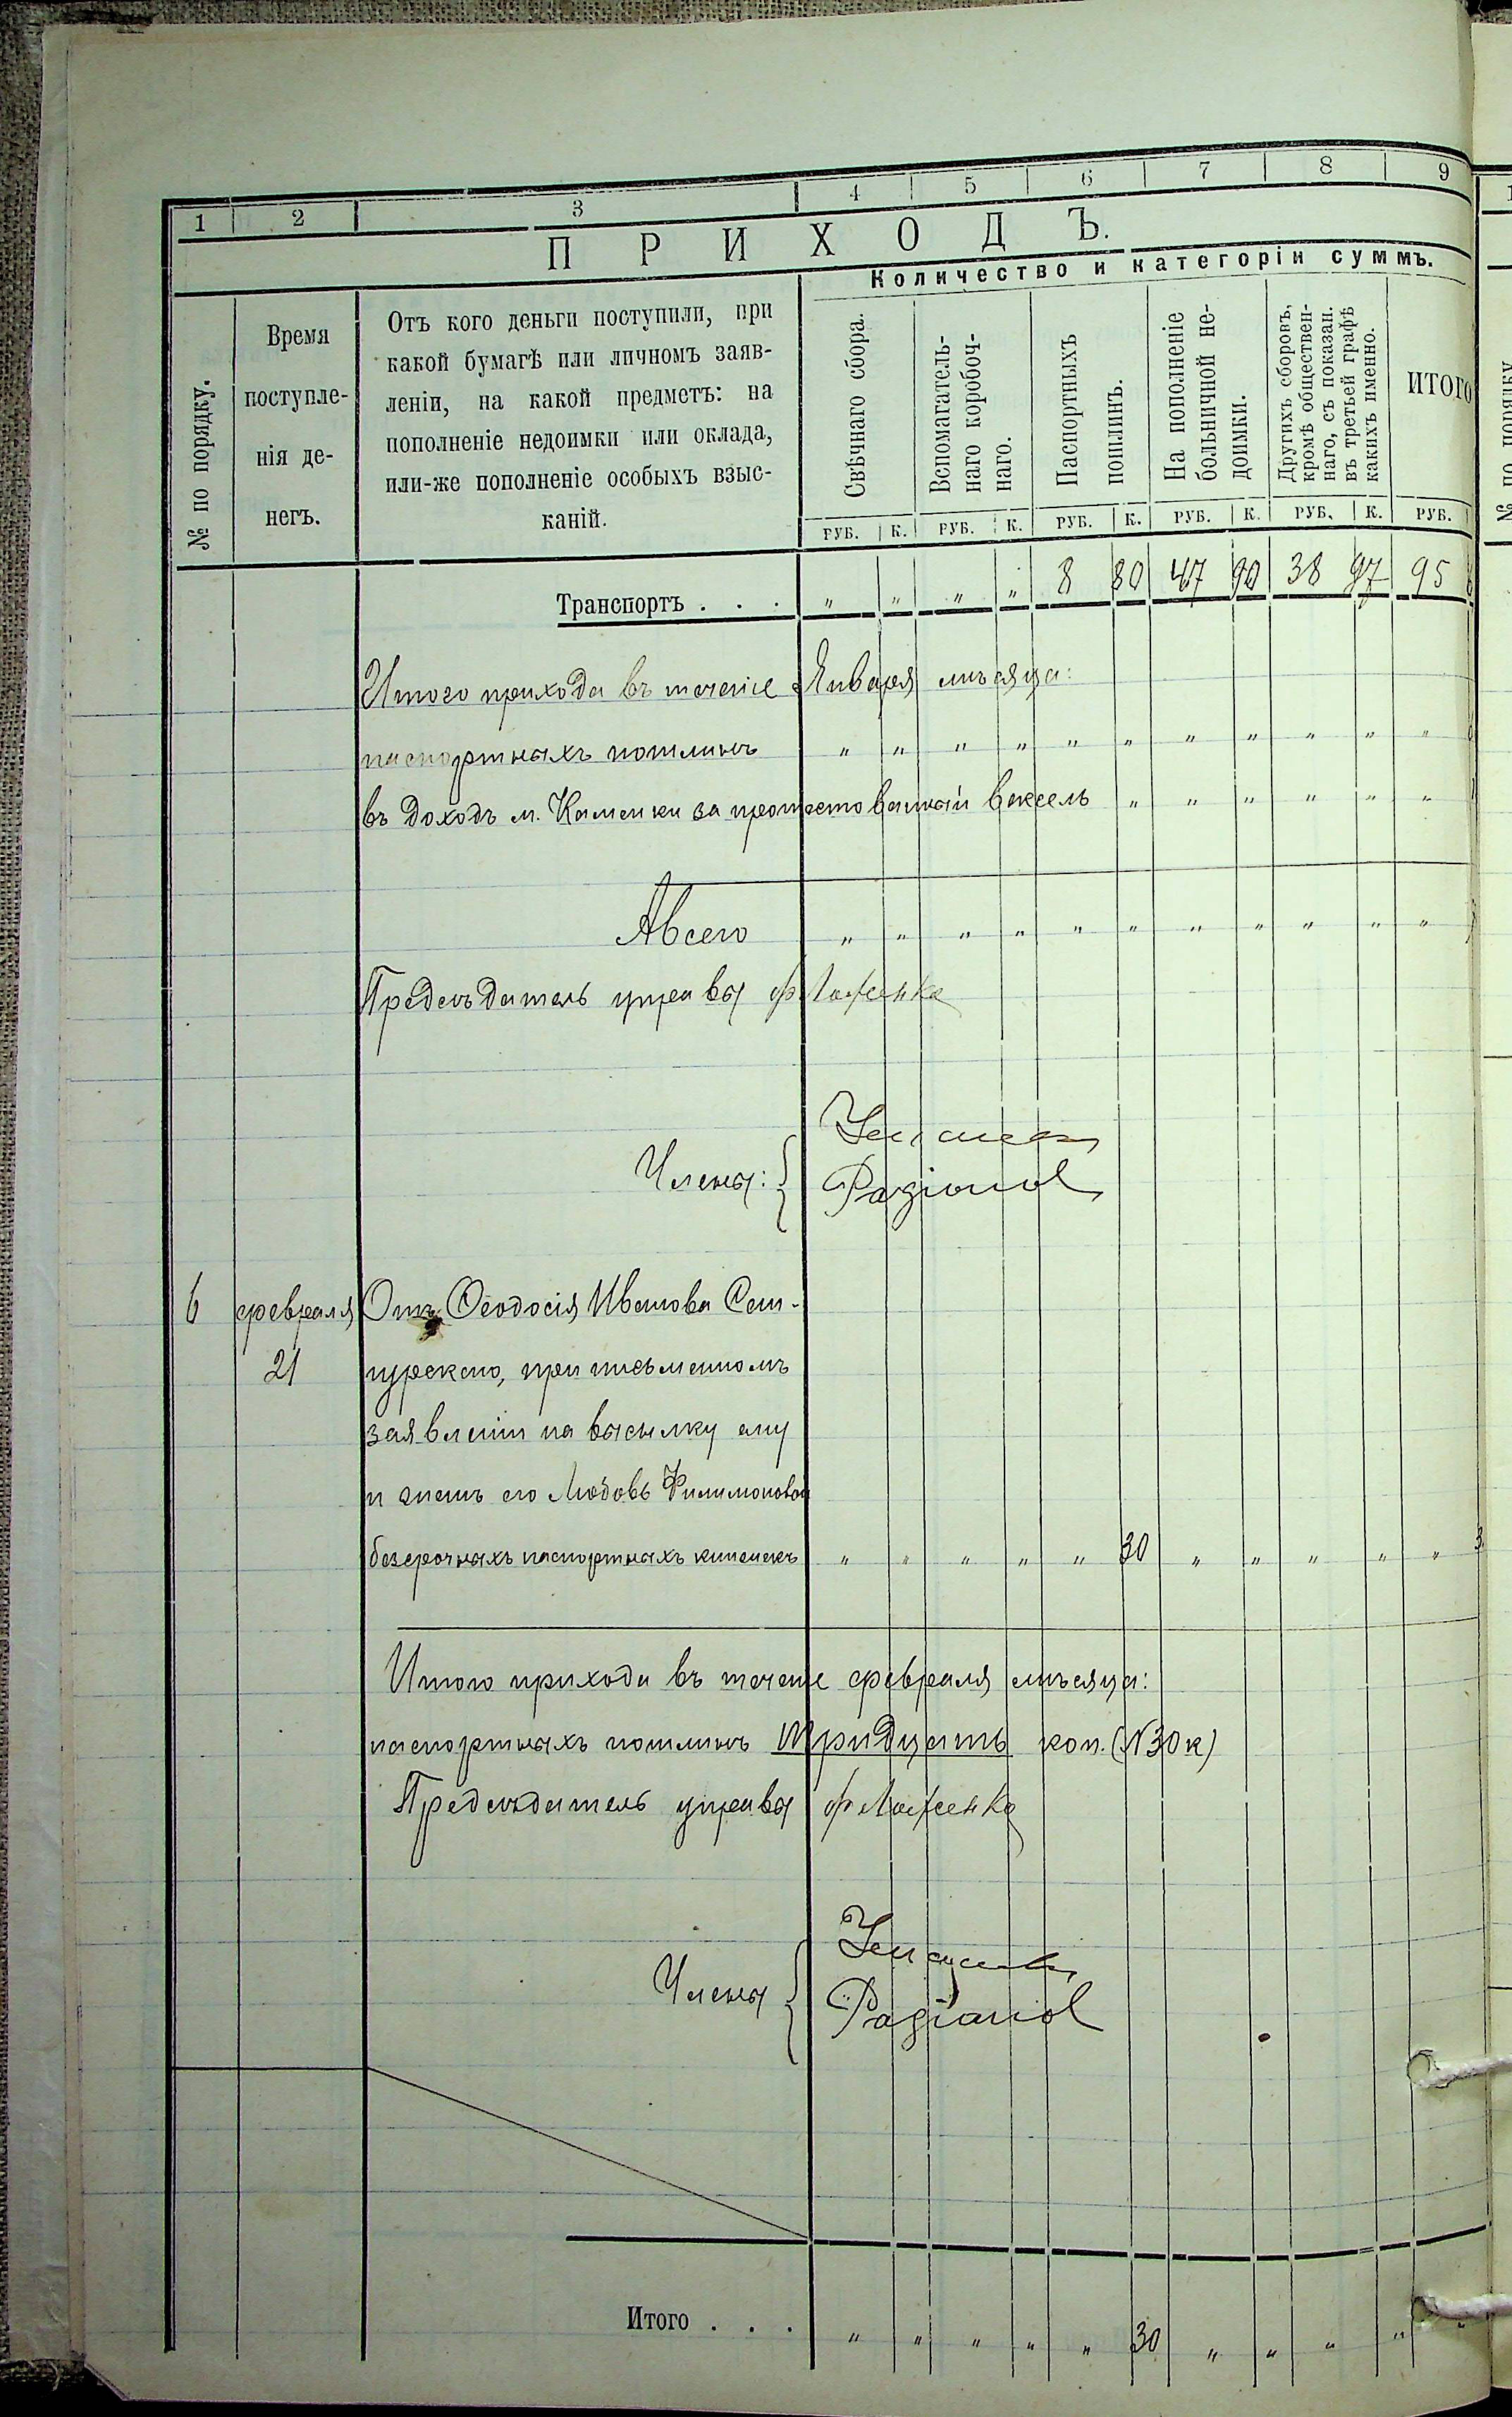 1 2 3 4 5 6 7 8 9
ПРИХОДЪ.
Количество и категоріи суммъ.
№ по порядку.
Время
поступле-
нія де-
негъ.
Отъ кого деньги поступили, при
какой бумагѣ или личномъ заяв-
леніи, на какой предметъ: на
пополненіе недоимки или оклада,
или-же пополненіе особыхъ взыс-
каній.
Свѣчнаго сбора.
Вспомагатель-
наго коробоч-
наго.
Паспортныхъ
пошлинъ.
На пополненіе
больничной не-
доимки.
Другихъ сборовъ,
кромѣ обществен-
наго, съ показан.
въ третьей графѣ
какихъ именно.
ИТОГО
РУБ. К. РУБ. К. РУБ. К. РУБ. К. РУБ. К. РУБ.
Транспортъ . . . " " " " 8 80 47 90 38 97 95
Итого прихода въ теченіе Января мѣсяца:
паспортныхъ пошлинъ " " " " " " " " " " "
въ доходъ м. Каменки за протестованный вексель " " " " " "
Авсего " " " " " " " " " " "
Предсѣдатель управы
Члены:
6 февраля Отъ Ѳеодосія Иванова
21 при письменномъ
заявленіи на высылку ему
и женѣ его Любовь Филимоновой
безсрочныхъ паспортныхъ книжекъ " " " " " 30 " " " " "
Итого прихода въ теченіе февраля мѣсяца:
паспортныхъ пошлинъ тридцать коп. (№30к)
Предсѣдатель управы
Члены
Итого . . . " " " " " 30 " " " "